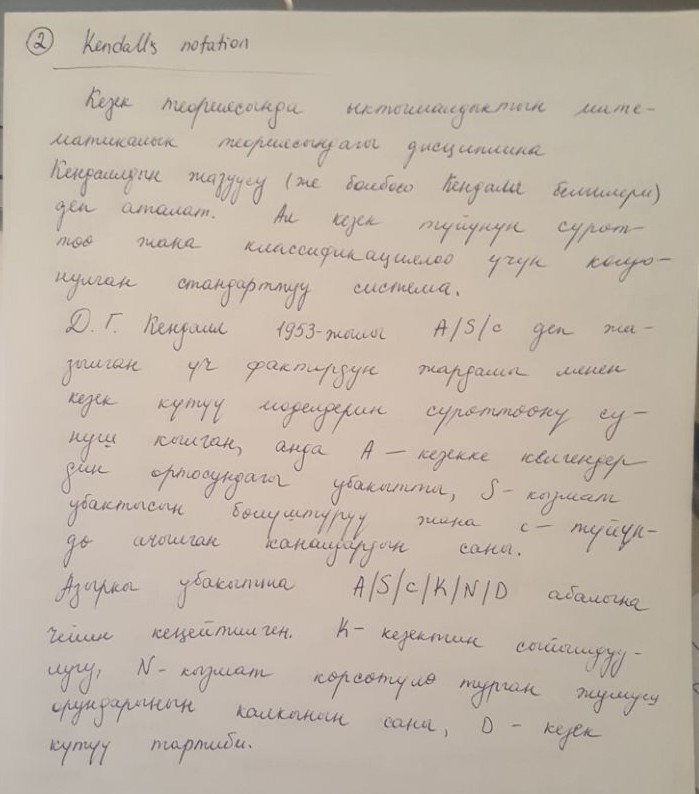 ② Kendall's notation
Кезек теориясында ыктымалдыктын мате-
матикалык теориясындагы дисциплина
Кендаллдын жазуусу (же болбосо Кендалл белгилери)
деп аталат. Ал кезек түйүнүн сүрөт-
төө жана классификациялоо үчүн колдо-
нулган стандарттуу система.
Д. Г. Кендалл 1953-жылы A/S/c деп жа-
зылган үч фактордун жардамы менен
кезек күтүү моделдерин сүрөттөөнү су-
нуш кылган, анда A – кезекке келгендер
дин ортосундагы убакытты, S – кызмат
убактысын бөлүштүрүү жана c – түйүн-
дө ачылган каналдардын саны.
Азыркы убакытта A/S/c/K/N/D абалына
чейин кеңейтилген. K – кезектин сыйымдуу-
лугу, N – кызмат көрсөтүлө турган жумуш
орундарынын калкынын саны, D – кезек
күтүү тартиби.